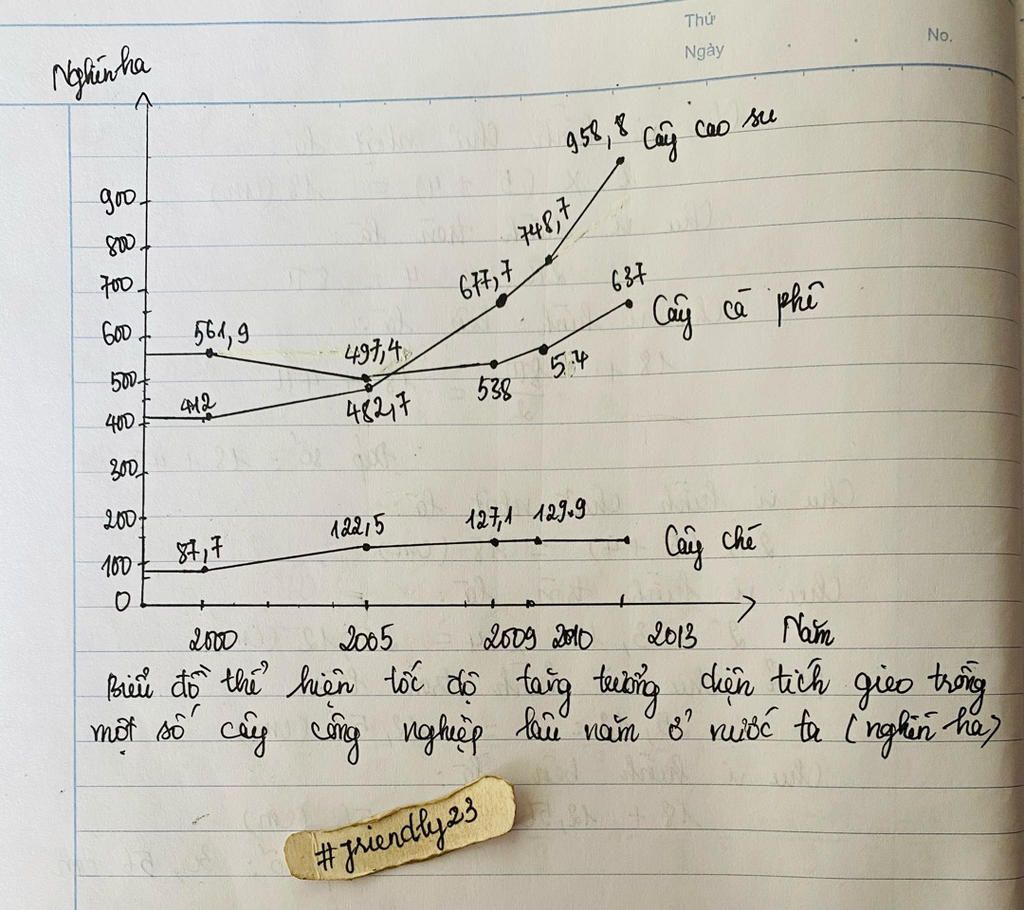 Thứ
Ngày
No.
Nghìn ha
958,8 Cây cao su
900
800 748,7
700 677,7 637 Cây cà phê
600 561,9
497,4
500 538
412 482,7
400
300
200 122,5 127,1 129.9 Cây chè
100 87,7
0
2000 2005 2009 2010 2013 Năm
Biểu đồ thể hiện tốc độ tăng trưởng diện tích gieo trồng
một số cây công nghiệp lâu năm ở nước ta (nghìn ha)
#friendly23